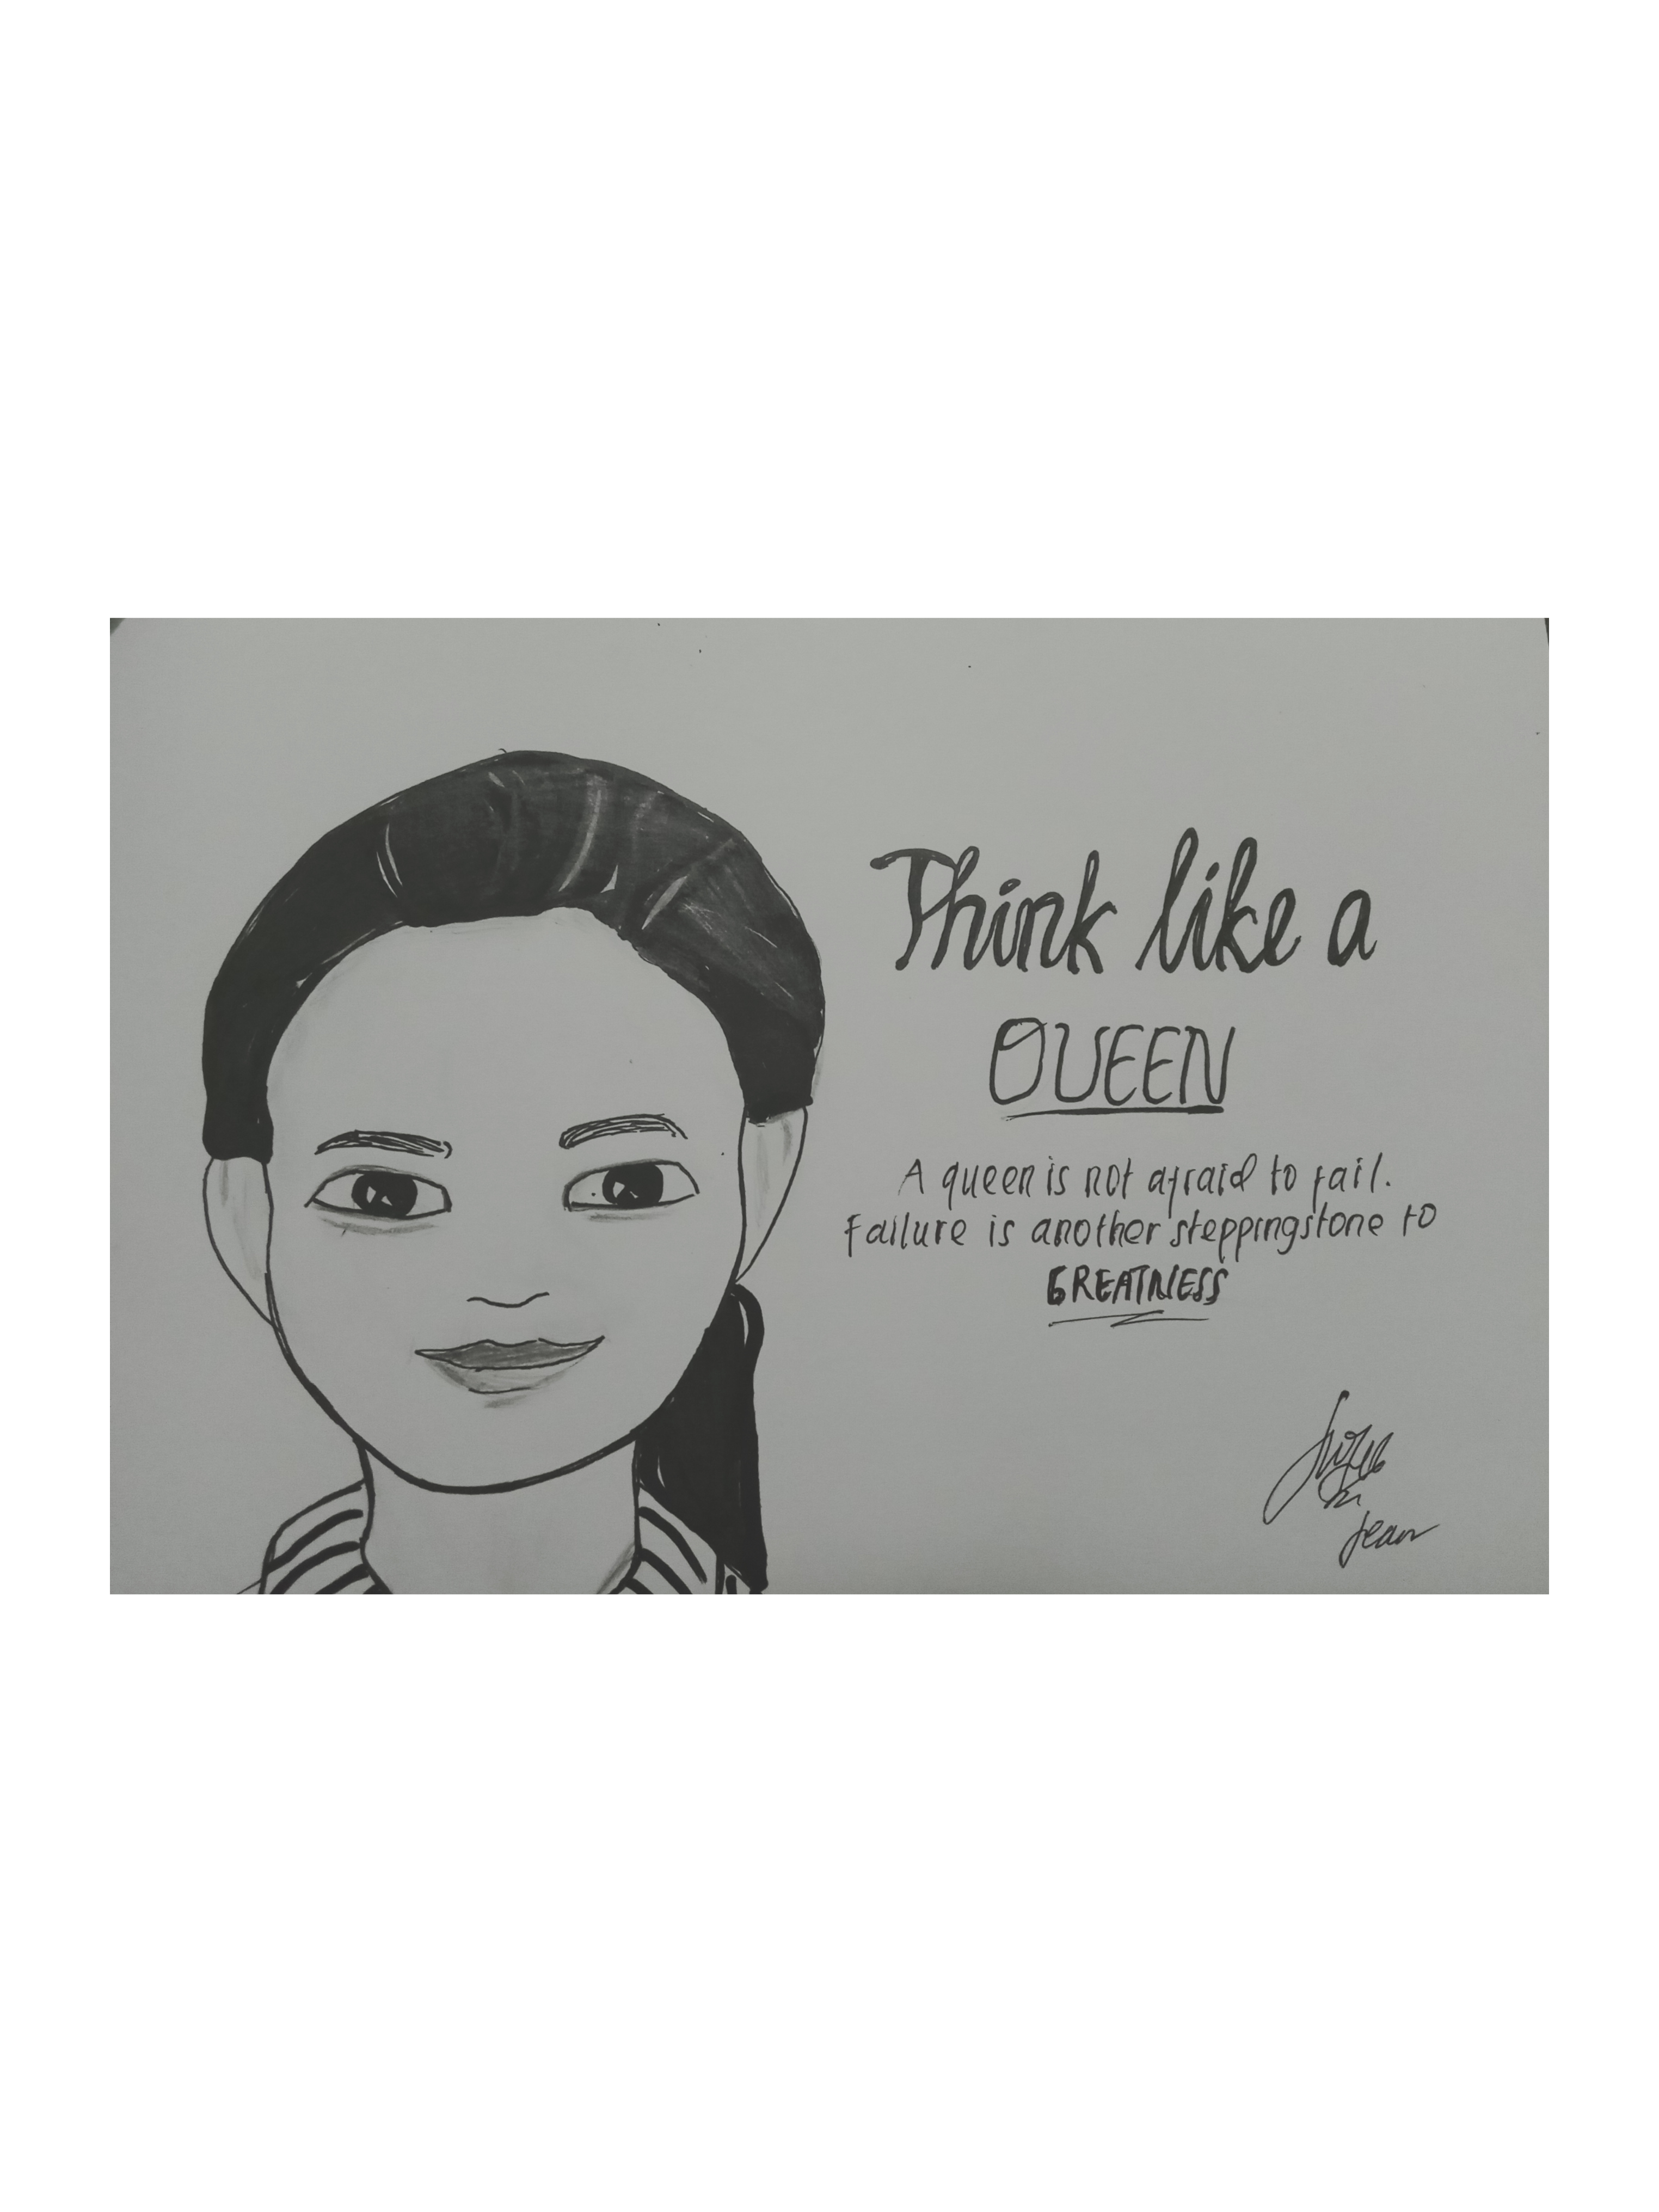 Think like a
QUEEN
A queen is not afraid to fail.
Failure is another steppingstone to
GREATNESS
jean